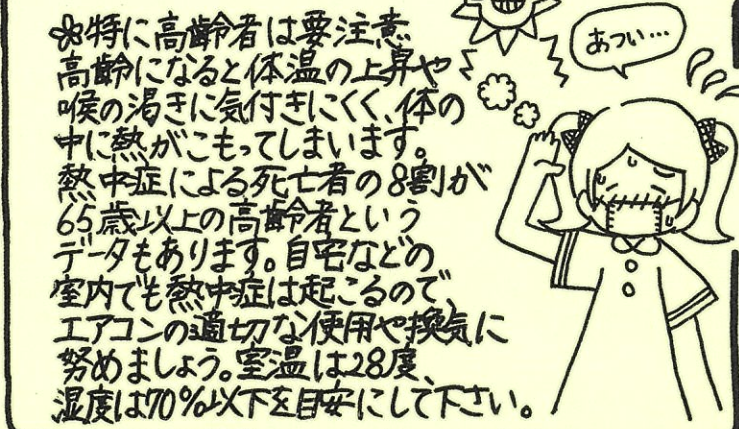 ※特に高齢者は要注意
高齢になると体温の上昇や
喉の渇きに気付きにくく、体の
中に熱がこもってしまいます。
熱中症による死亡者の8割が
65歳以上の高齢者という
データもあります。自宅などの
室内でも熱中症は起こるので、
エアコンの適切な使用や換気に
努めましょう。室温は28度、
湿度は70%以下を目安にして下さい。
あつい…